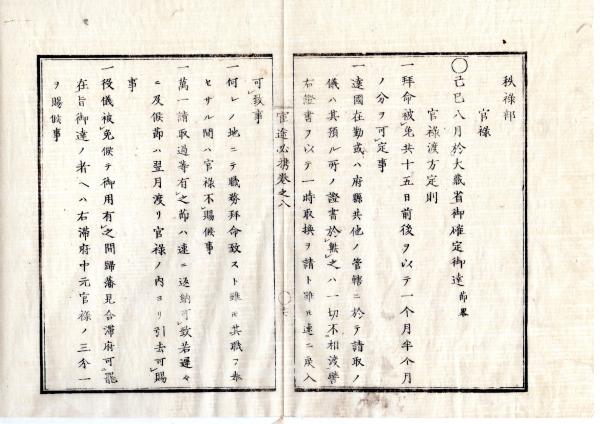 秩禄部
官禄
〇己巳八月於大蔵省御確定御達 節畧
官禄渡方定則
一拝命被免共十五日前後ヲ以テ一个月半个月
ノ分ヲ可定事
一遠国在勤或ハ府縣其他ノ管轄ニ於テ請取ノ
儀ハ其預ル所ノ證書於無之ハ一切不相渡譬
右證書ヲ以テ一時取換ヲ請ト雖ル速ニ戻入
官途必携巻之八
可致事
一何レノ地ニテ職務拝命致スト雖ル其職ヲ奉
セサル間ハ官禄不賜候事
一萬一請取過等有之節ハ速ニ返納可致若遲々
ニ及候節ハ翌月渡リ官禄ノ内ヨリ引去可賜
事
一役儀被免候テ御用有之間歸藩見合滞府可罷
在旨御達ノ者ヘハ右滞府中元官禄ノ三分一
ヲ賜候事